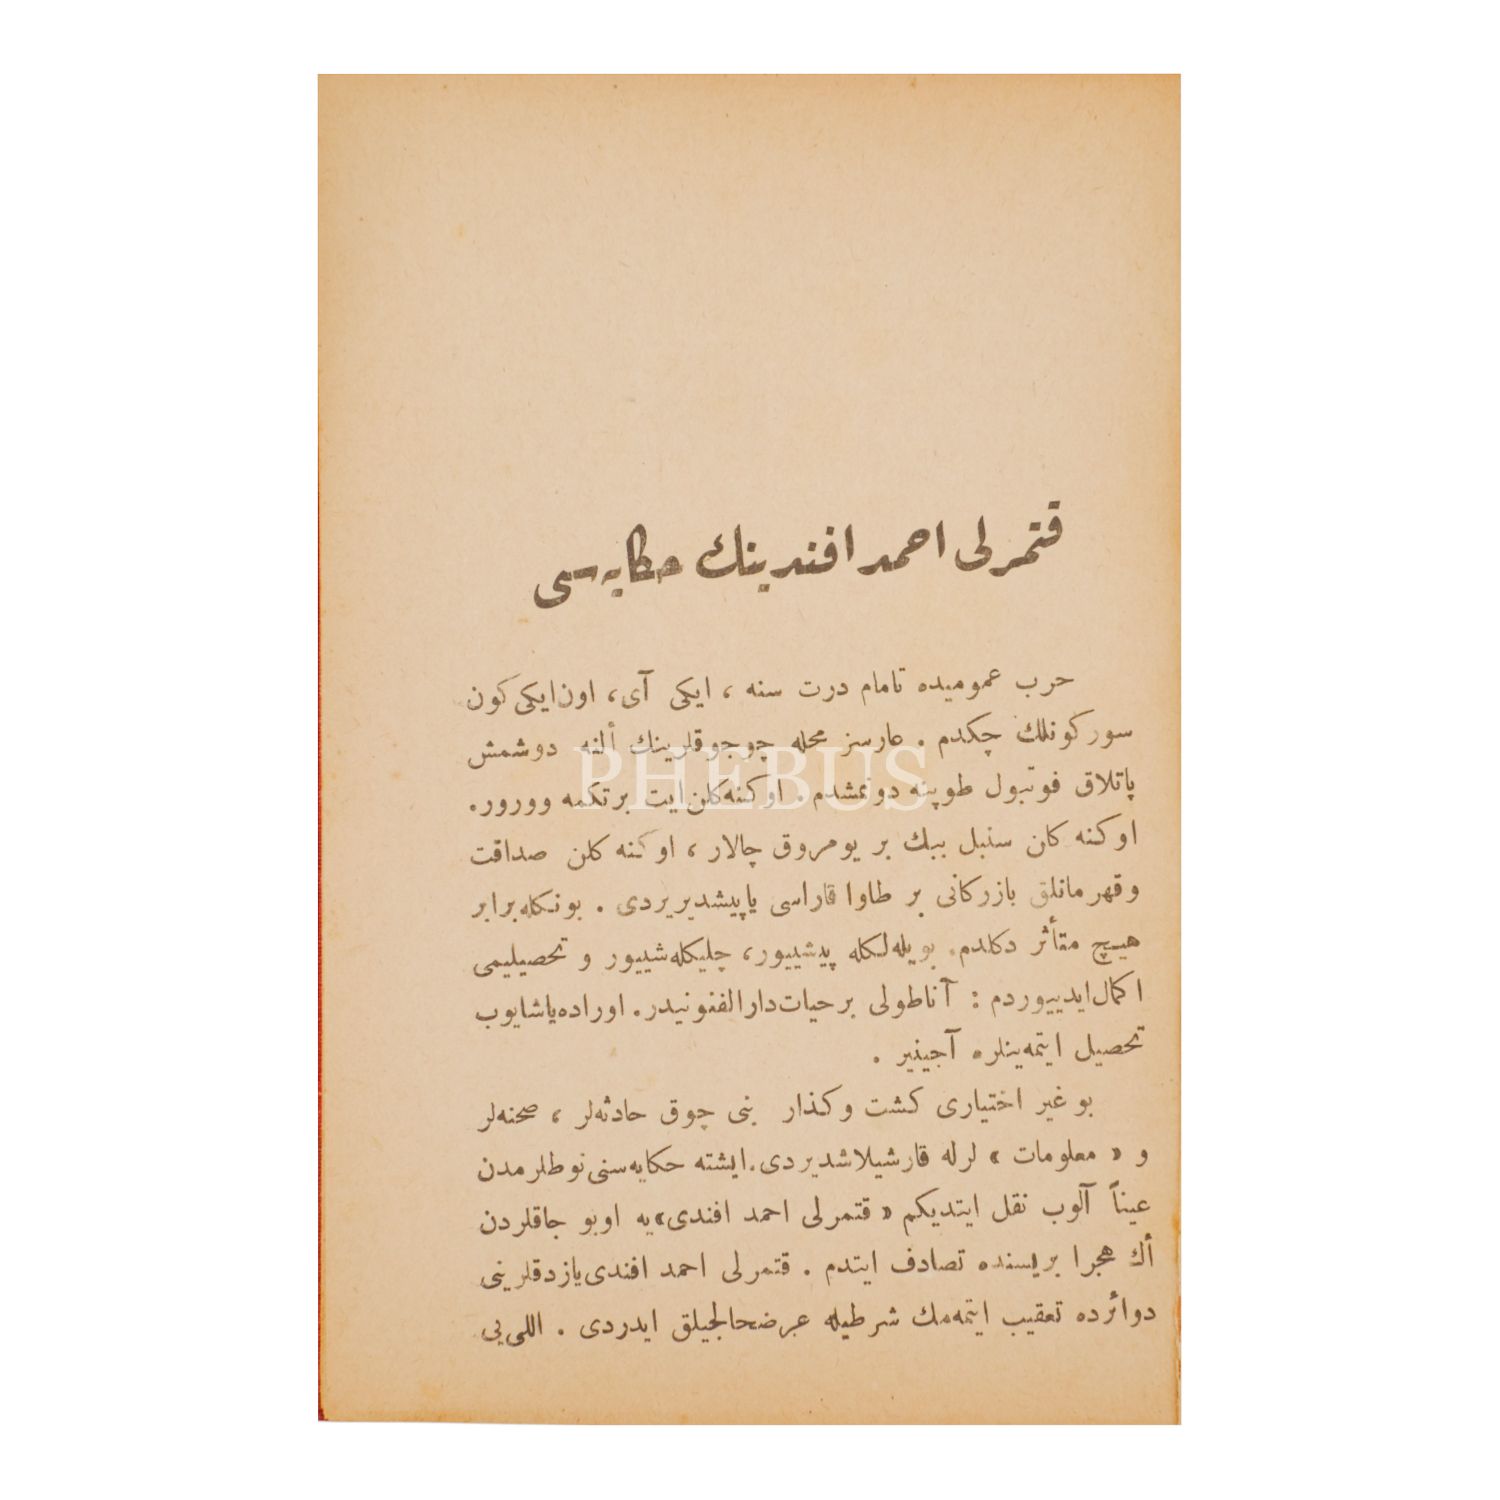 قتمرلی احمد افندینك حكایه‌سی
حرب عمومیده تامام درت سنه ، ایكی آی ، اون‌ایكی كون
سوركونلك چكدم . عارسز محله چوجوقلرینك ألنه دوشمش
پاتلاق فوتبول طوپنه دونمشدم . اوكنه‌كلن‌ایت برتكمه وورور .
اوكنه كلن سنبل ببك بر یومروق چالار ، اوكنه كلن صداقت
وقهرمانلق بازركانی بر طاوا قاراسی یاپیشدیریردی . بونكله‌برابر
هیچ متأثر دكلدم . بویله‌لكله پیشییور ، چلیكله‌شییور و تحصیلیمی
اكمال‌ایدییوردم : آناطولی برحیات‌دارالفنونیدر . اوراده‌یاشایوب
تحصیل ایتمه‌ینلره آجینیر .
بو غیر اختیاری كشت وكذار بنی چوق حادثه‌لر ، صحنه‌لر
و « معلومات » لرله قارشیلاشدیردی . ایشته حكایه‌سنی‌نوطلرمدن
عیناً آلوب نقل ایتدیكم « قتمرلی احمد افندی»یه اوبوجاقلردن
أك هجرا بریسنده تصادف ایتدم . قتمرلی احمد افندی‌یازدقلرینی
دوائرده تعقیب ایتمه‌مك شرطیله عرضحالجیلق ایدردی . اللی‌یی
PHEBUS